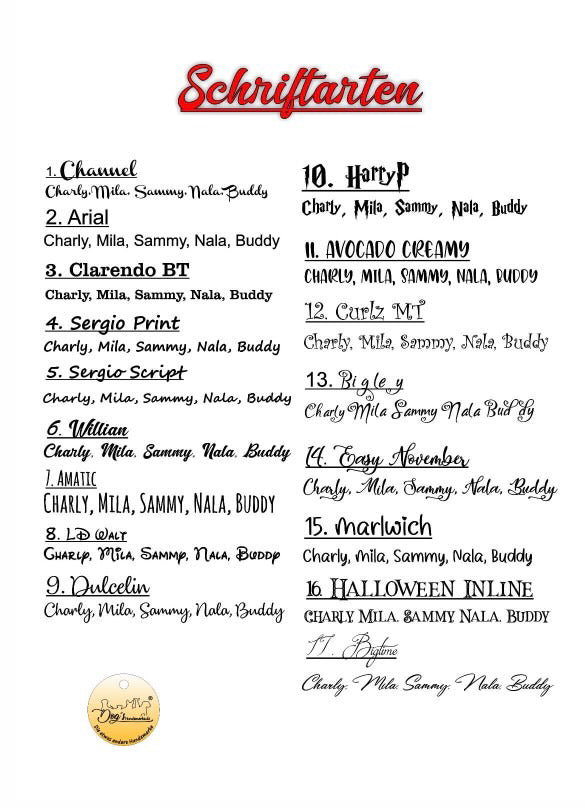 Schriftarten
1. Channel
Charly, Mila, Sammy, Nala, Buddy
2. Arial
Charly, Mila, Sammy, Nala, Buddy
3. Clarendo BT
Charly, Mila, Sammy, Nala, Buddy
4. Sergio Print
Charly, Mila, Sammy, Nala, Buddy
5. Sergio Script
Charly, Mila, Sammy, Nala, Buddy
6. Willian
Charly. Mila. Sammy. Nala. Buddy
7. Amatic
Charly, Mila, Sammy, Nala, Buddy
8. LD Walt
Charly, Mila, Sammy, Nala, Buddy
9. Dulcelin
Charly, Mila, Sammy, Nala, Buddy
10. HarryP
Charly, Mila, Sammy, Nala, Buddy
11. AVOCADO CREAMY
CHARLY, MILA, SAMMY, NALA, BUDDY
12. Curlz MT
Charly, Mila, Sammy, Nala, Buddy
13. Bigley
Charly Mila Sammy Nala Buddy
14. Easy November
Charly, Mila, Sammy, Nala, Buddy
15. Marlwich
Charly, Mila, Sammy, Nala, Buddy
16. HALLOWEEN INLINE
CHARLY MILA. SAMMY NALA. BUDDY
17. Bigtime
Charly. Mila. Sammy. Nala. Buddy
Dog's
Die etwas andere Hundemarke